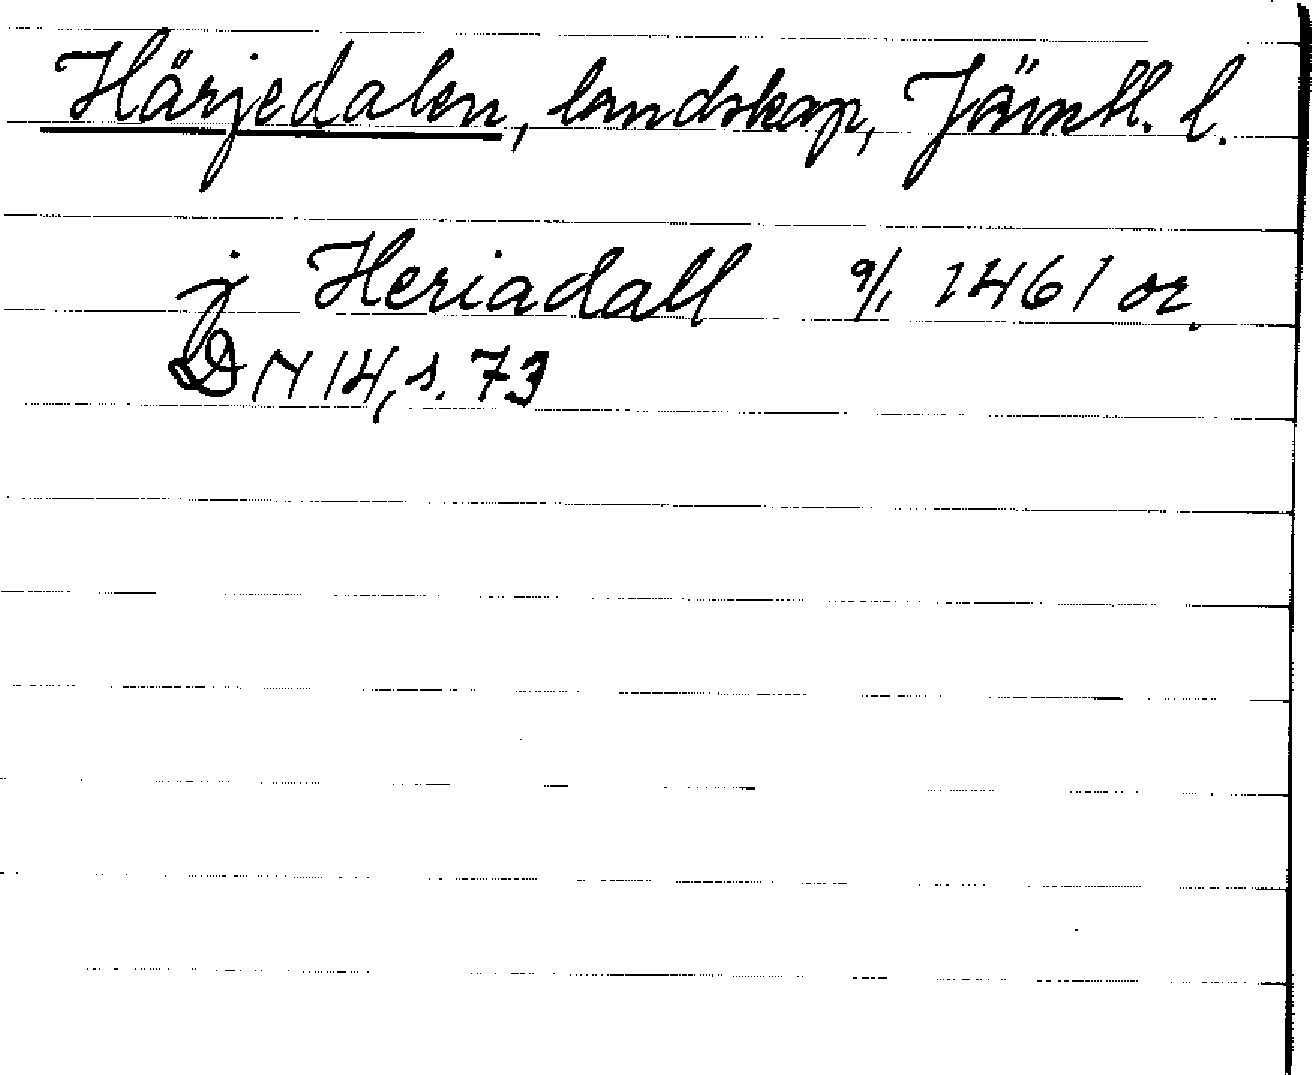 Härjedalen, landskap, Jämtl. l.
j Heriadall 9/1 1461 or.
DN 14, s. 73